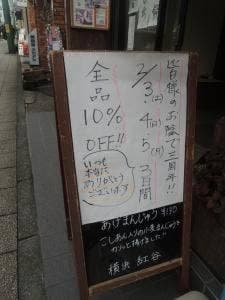 皆様のお陰で三周年!!
2/3(土)4(日)5(月)3日間
全品
10%
OFF!!
いつも
本当に
ありがとう
ございます
あげまんじゅう ¥130
こしあん入りの小麦まんじゅうを
カラッと揚げました!!
横浜 紅谷